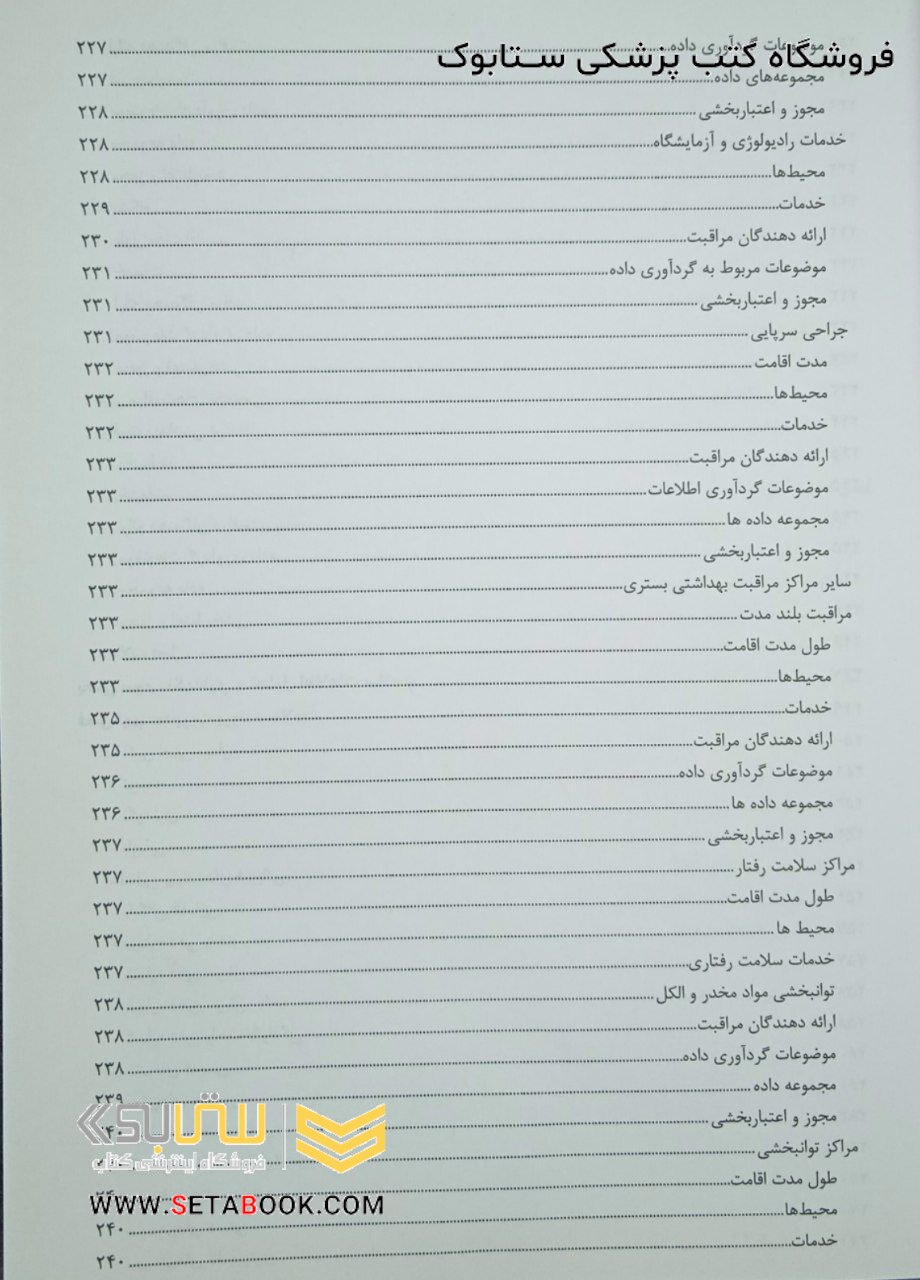 فروشگاه کتب پزشکی ستابوک
موضوعات گردآوری داده ۲۲۷
مجموعه‌های داده ۲۲۷
مجوز و اعتباربخشی ۲۲۸
خدمات رادیولوژی و آزمایشگاه ۲۲۸
محیط‌ها ۲۲۸
خدمات ۲۲۹
ارائه دهندگان مراقبت ۲۳۰
موضوعات مربوط به گردآوری داده ۲۳۱
مجوز و اعتباربخشی ۲۳۱
جراحی سرپایی ۲۳۱
مدت اقامت ۲۳۲
محیط‌ها ۲۳۲
خدمات ۲۳۲
ارائه دهندگان مراقبت ۲۳۳
موضوعات گردآوری اطلاعات ۲۳۳
مجموعه داده ها ۲۳۳
مجوز و اعتباربخشی ۲۳۳
سایر مراکز مراقبت بهداشتی بستری ۲۳۳
مراقبت بلند مدت ۲۳۳
طول مدت اقامت ۲۳۳
محیط‌ها ۲۳۳
خدمات ۲۳۵
ارائه دهندگان مراقبت ۲۳۵
موضوعات گردآوری داده ۲۳۶
مجموعه داده ها ۲۳۶
مجوز و اعتباربخشی ۲۳۷
مراکز سلامت رفتار ۲۳۷
طول مدت اقامت ۲۳۷
محیط ها ۲۳۷
خدمات سلامت رفتاری ۲۳۷
توانبخشی مواد مخدر و الکل ۲۳۸
ارائه دهندگان مراقبت ۲۳۸
موضوعات گردآوری داده ۲۳۸
مجموعه داده ۲۳۹
مجوز و اعتباربخشی
مراکز توانبخشی
طول مدت اقامت
محیط‌ها ۲۴۰
خدمات ۲۴۰
ستابوک
فروشگاه اینترنتی کتاب
WWW.SETABOOK.COM